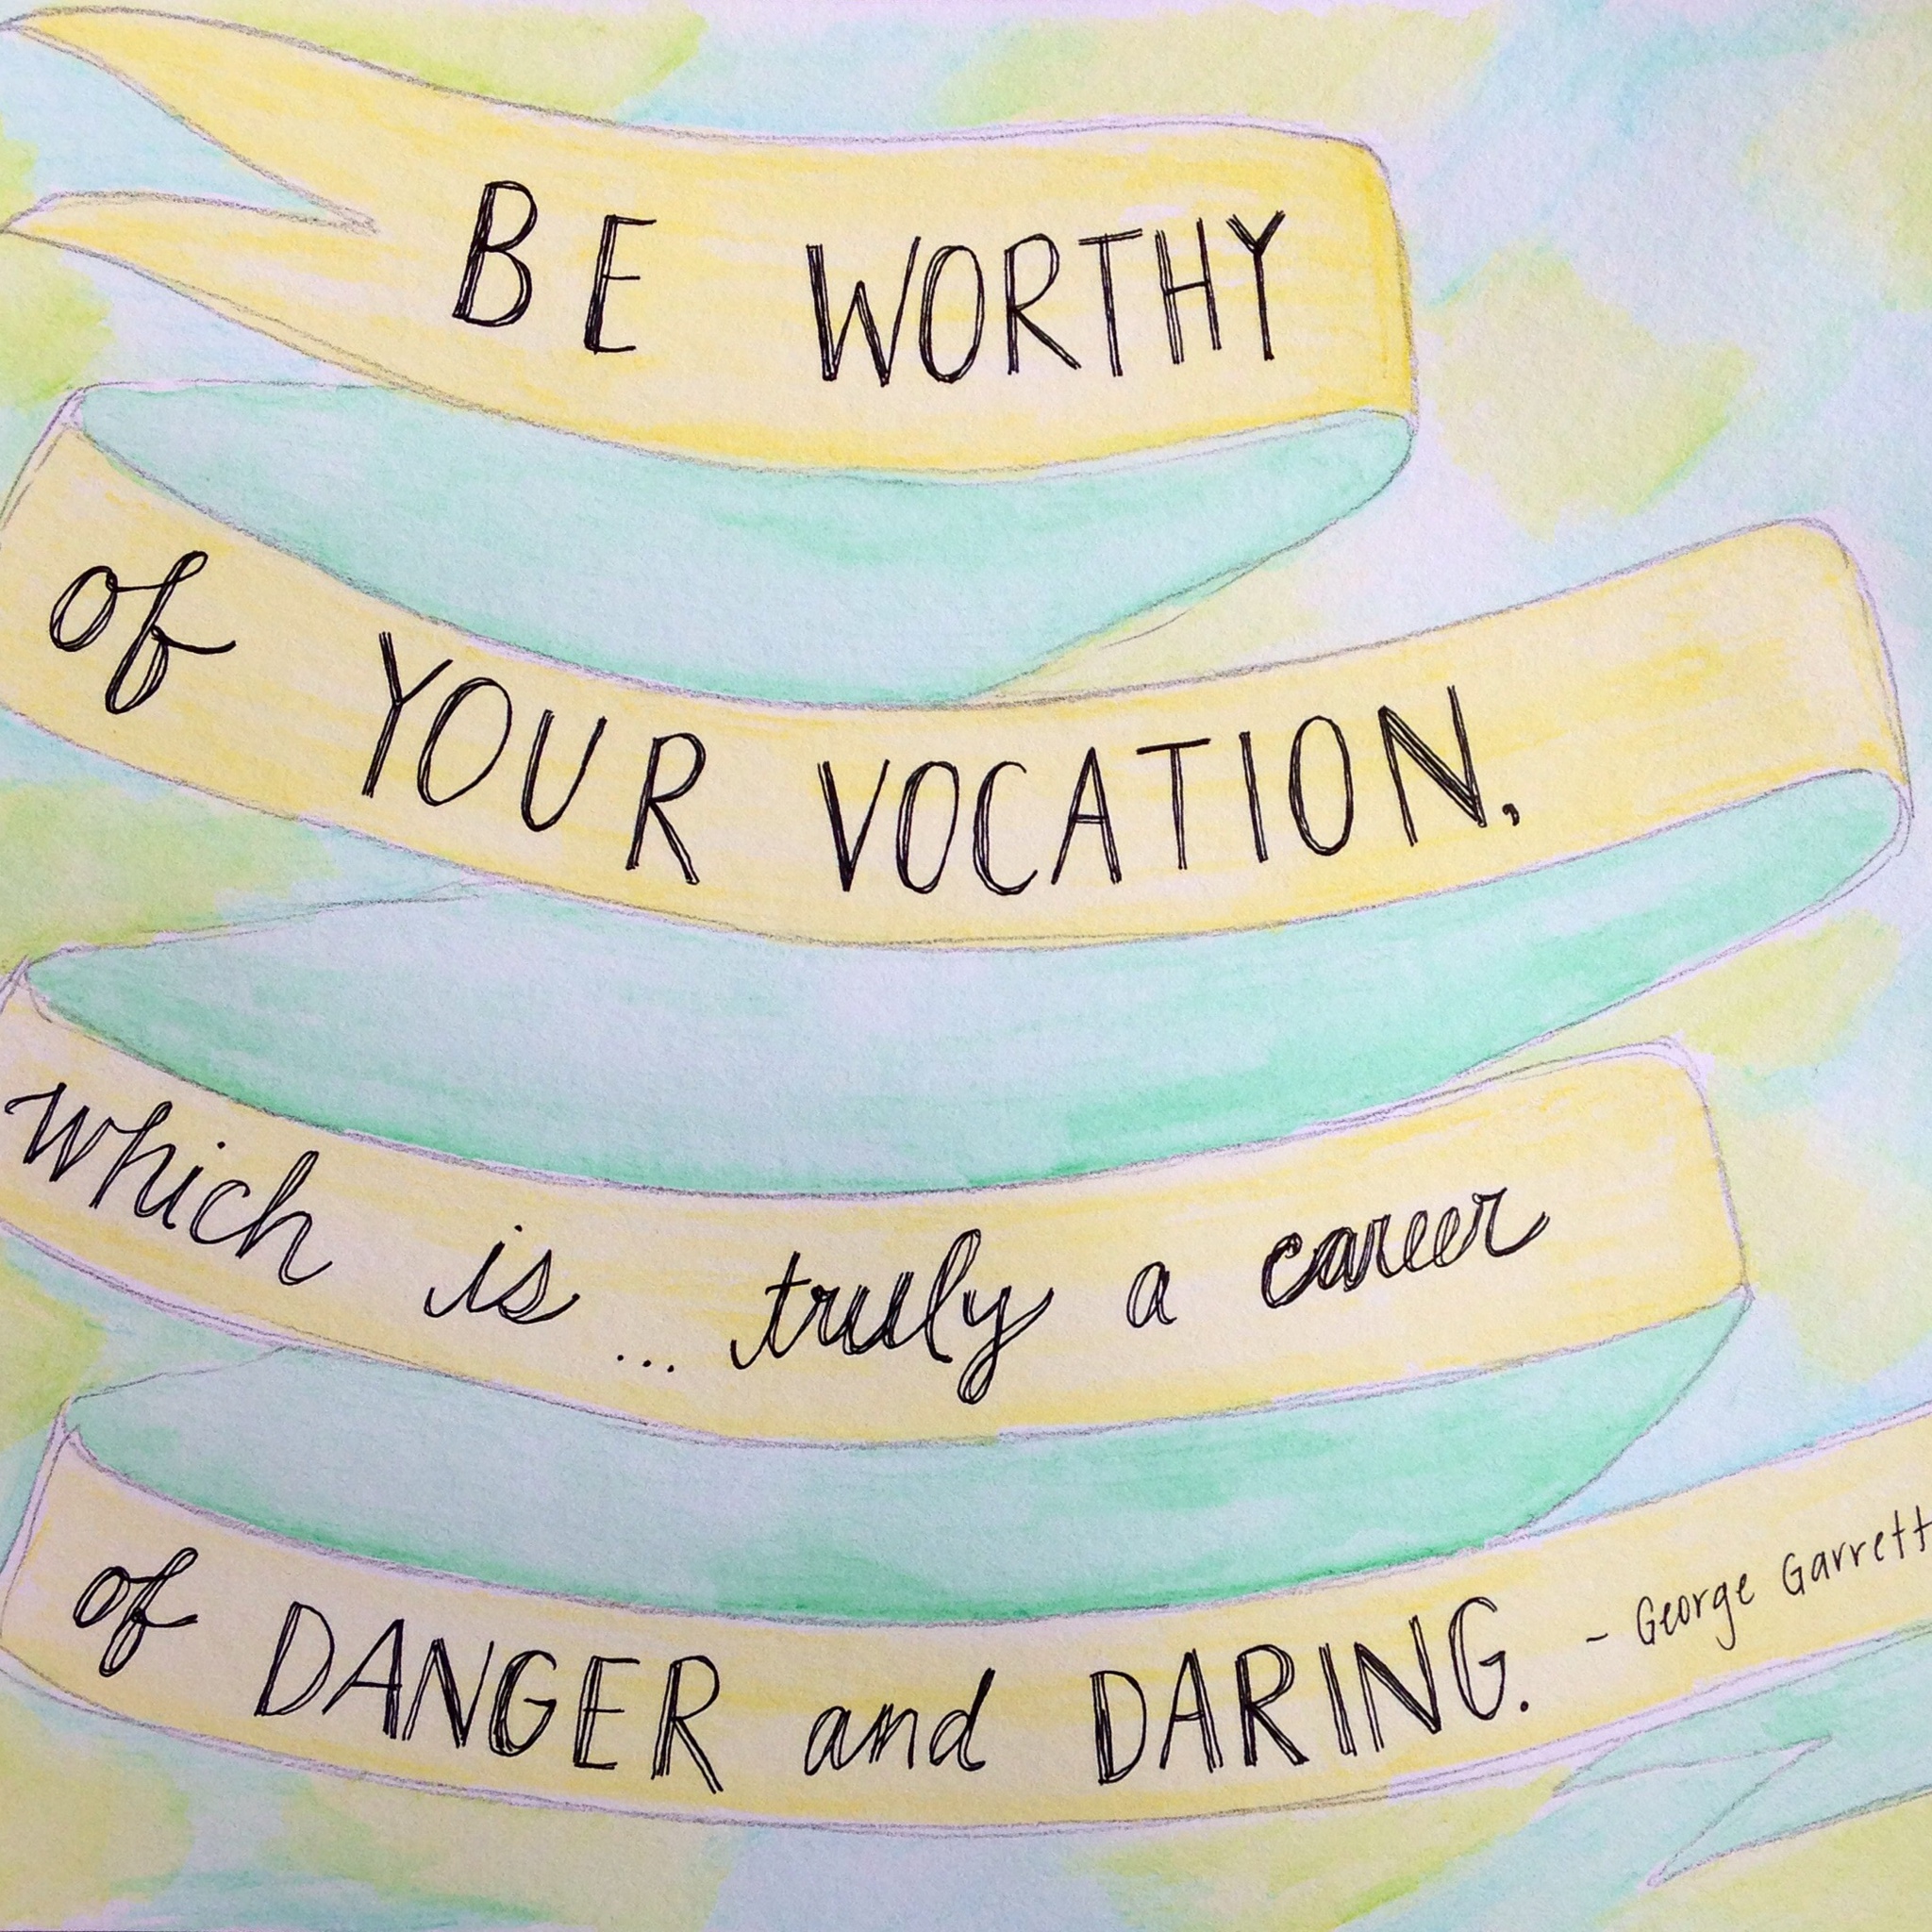 BE WORTHY
of YOUR VOCATION,
which is... truly a career
of DANGER and DARING. - George Garrett